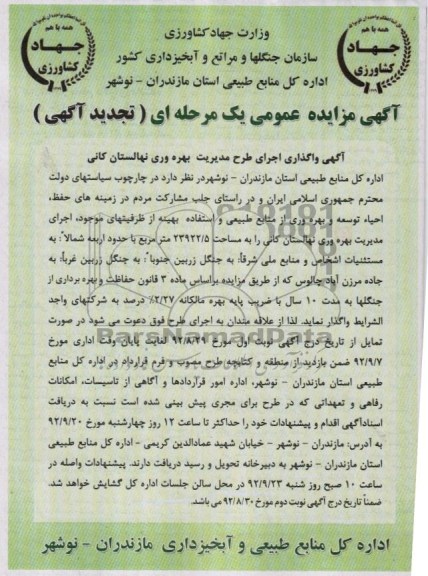 همه با هم
جهاد
کشاورزی
همه با هم
جهاد
کشاورزی
وزارت جهادکشاورزی
سازمان جنگلها و مراتع و آبخیزداری کشور
اداره کل منابع طبیعی استان مازندران - نوشهر
آگهی مزایده عمومی یک مرحله ای ( تجدید آگهی )
آگهی واگذاری اجرای طرح مدیریت بهره وری نهالستان کانی
اداره کل منابع طبیعی استان مازندران - نوشهردر نظر دارد در چارچوب سیاستهای دولت
محترم جمهوری اسلامی ایران و در راستای جلب مشارکت مردم در زمینه های حفظ،
احیاء توسعه و بهره وری از منابع طبیعی و استفاده بهینه از ظرفیتهای موجود، اجرای
مدیریت بهره وری نهالستان کانی را به مساحت ۲۳۹۲۲/۵ متر مربع با حدود اربعه شمالاً : به
مستثنیات اشخاص و منابع ملی شرقاً: به جنگل زربین جنوباً : به جنگل زربین غرباً: به
جاده مرزن آباد چالوس که از طریق مزایده براساس ماده ۳ قانون حفاظت و بهره برداری از
جنگلها به مدت ۱۰ سال با ضریب پایه بهره مالکانه ۲/۲۷٪ درصد به شرکتهای واجد
الشرایط واگذار نماید. لذا از علاقه مندان به اجرای طرح فوق دعوت می شود در صورت
تمایل از تاریخ درج آگهی نوبت اول مورخ ۹۲/۸/۲۹ لغایت پایان وقت اداری مورخ
۹۲/۹/۷ ضمن بازدید از منطقه و کتابچه طرح مصوب و فرم قرارداد در اداره کل منابع
طبیعی استان مازندران - نوشهر، اداره امور قراردادها و آگاهی از تاسیسات، امکانات
رفاهی و تعهداتی که در طرح برای مجری پیش بینی شده است نسبت به دریافت
اسنادآگهی اقدام و پیشنهادات خود را حداکثر تا ساعت ۱۲ روز چهارشنبه مورخ ۹۲/۹/۲۰
به آدرس: مازندران - نوشهر - خیابان شهید عمادالدین کریمی - اداره کل منابع طبیعی
استان مازندران - نوشهر به دبیرخانه تحویل و رسید دریافت دارند. پیشنهادات واصله در
ساعت ۱۰ صبح روز شنبه ۹۲/۹/۲۳ در محل سالن جلسات اداره کل گشایش خواهد شد.
ضمناً تاریخ درج آگهی نوبت دوم مورخ ۹۲/۸/۳۰ می باشد.
اداره کل منابع طبیعی و آبخیزداری مازندران - نوشهر
ParsNamadData